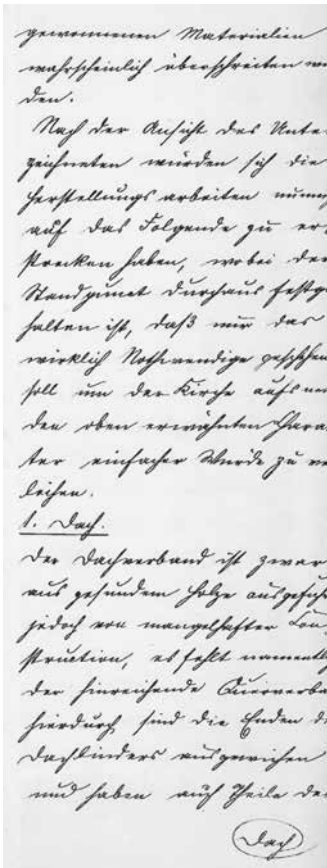 gewonnenen Materialien
wahrscheinlich überschreiten wü
den.
Nach der Ansicht des Unte
zeichneten würden sich die
Herstellungsarbeiten nunm
auf das Folgende zu er-
strecken haben, wobei der
Standpunct durchaus festge
halten ist, daß nur das
wirklich Nothwendige geschehen
soll um der Kirche aufs neu
den oben erwähnten Chara
ter einfacher Würde zu ve
leihen.
1. Dach.
Der Dachverband ist zwar
aus gesundem Holze ausgefüh
jedoch von mangelhafter Con
struction, es fehlt namentl
der hinreichende Querverba
hierdurch sind die Enden d
Dachbinders ausgewichen
und haben auch Theile de
Dach